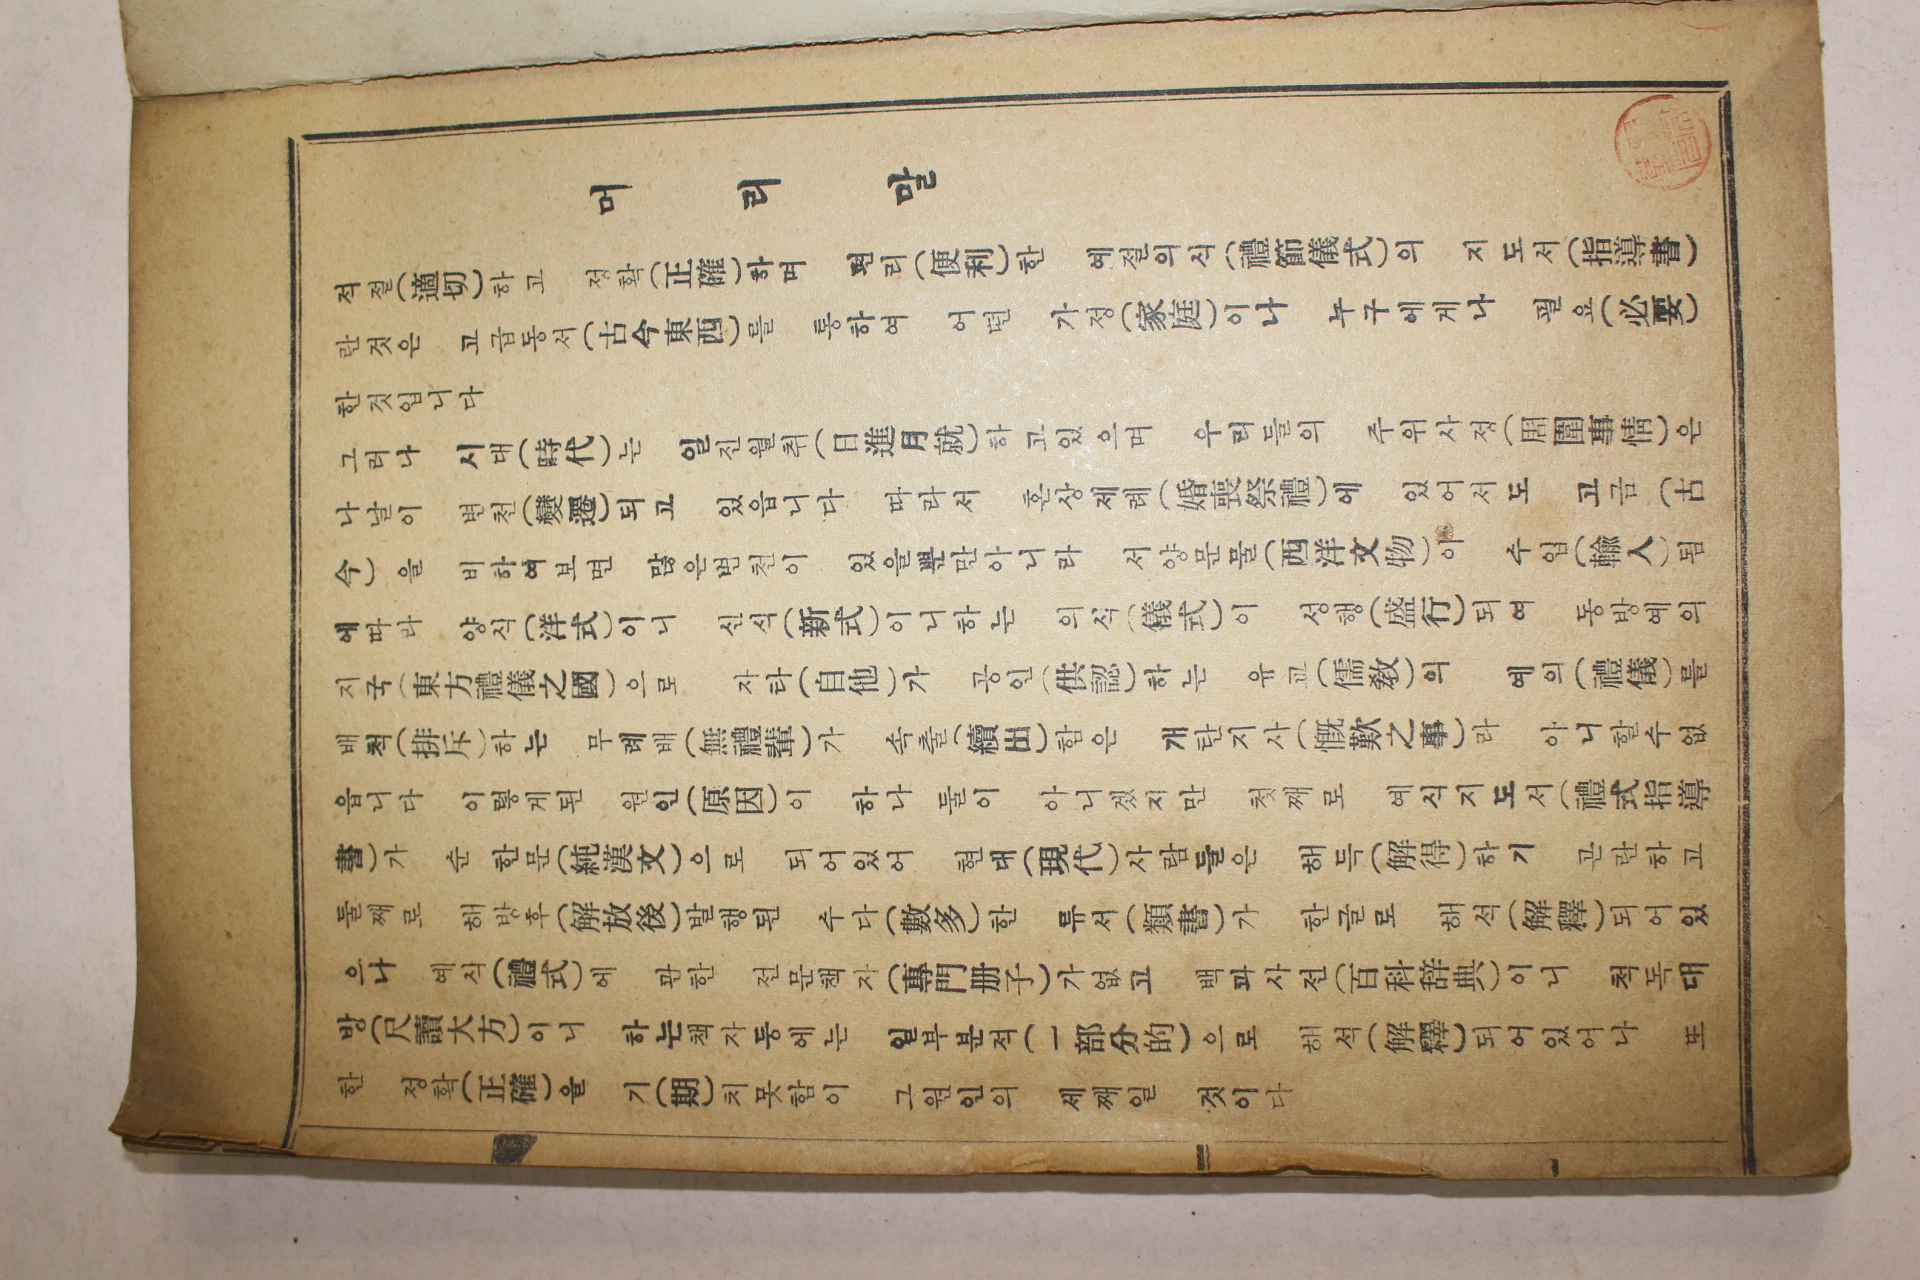 머리말
적절(適切)하고 정확(正確)하며 편리(便利)한 예절의식(禮節儀式)의 지도서(指導書)
란것은 고급동서(古今東西)를 통하여 어떤 가정(家庭)이나 누구에게나 필요(必要)
한것입니다
그러나 시대(時代)는 일진월취(日進月就)하고있으며 우리들의 주위사정(周圍事情)은
나날이 변천(變遷)되고 있읍니다 따라서 혼상제례(婚喪祭禮)에 있어서도 고금(古
今)을 비하여보면 많은변천이 있을뿐만아니라 서양문물(西洋文物)이 수입(輸入)됨
에따라 양식(洋式)이니 신식(新式)이니하는 의식(儀式)이 성행(盛行)되여 동방예의
지국(東方禮儀之國)으로 자타(自他)가 공인(供認)하는 유교(儒敎)의 예의(禮儀)를
배척(排斥)하는 무례배(無禮輩)가 속출(續出)함은 개탄지사(慨歎之事)라 아니할수없
읍니다 이렇게된 원인(原因)이 하나둘이 아니겠지만 첫째로 예식지도서(禮式指導
書)가 순 한문(純漢文)으로 되어있어 현대(現代)사람들은 해득(解得)하기 곤란하고
둘째로 해방후(解放後)발행된 수다(數多)한 류서(類書)가 한글로 해석(解釋)되어있
으나 예식(禮式)에 관한 전문책자(專門册子)가없고 백과사전(百科辞典)이니 척독대
방(尺讀大方)이니 하는책자등에는 일부분적(一部分的)으로 해석(解釋)되어있어나 또
한 정확(正確)을 기(期)치못함이 그원인의 세째일 것이다